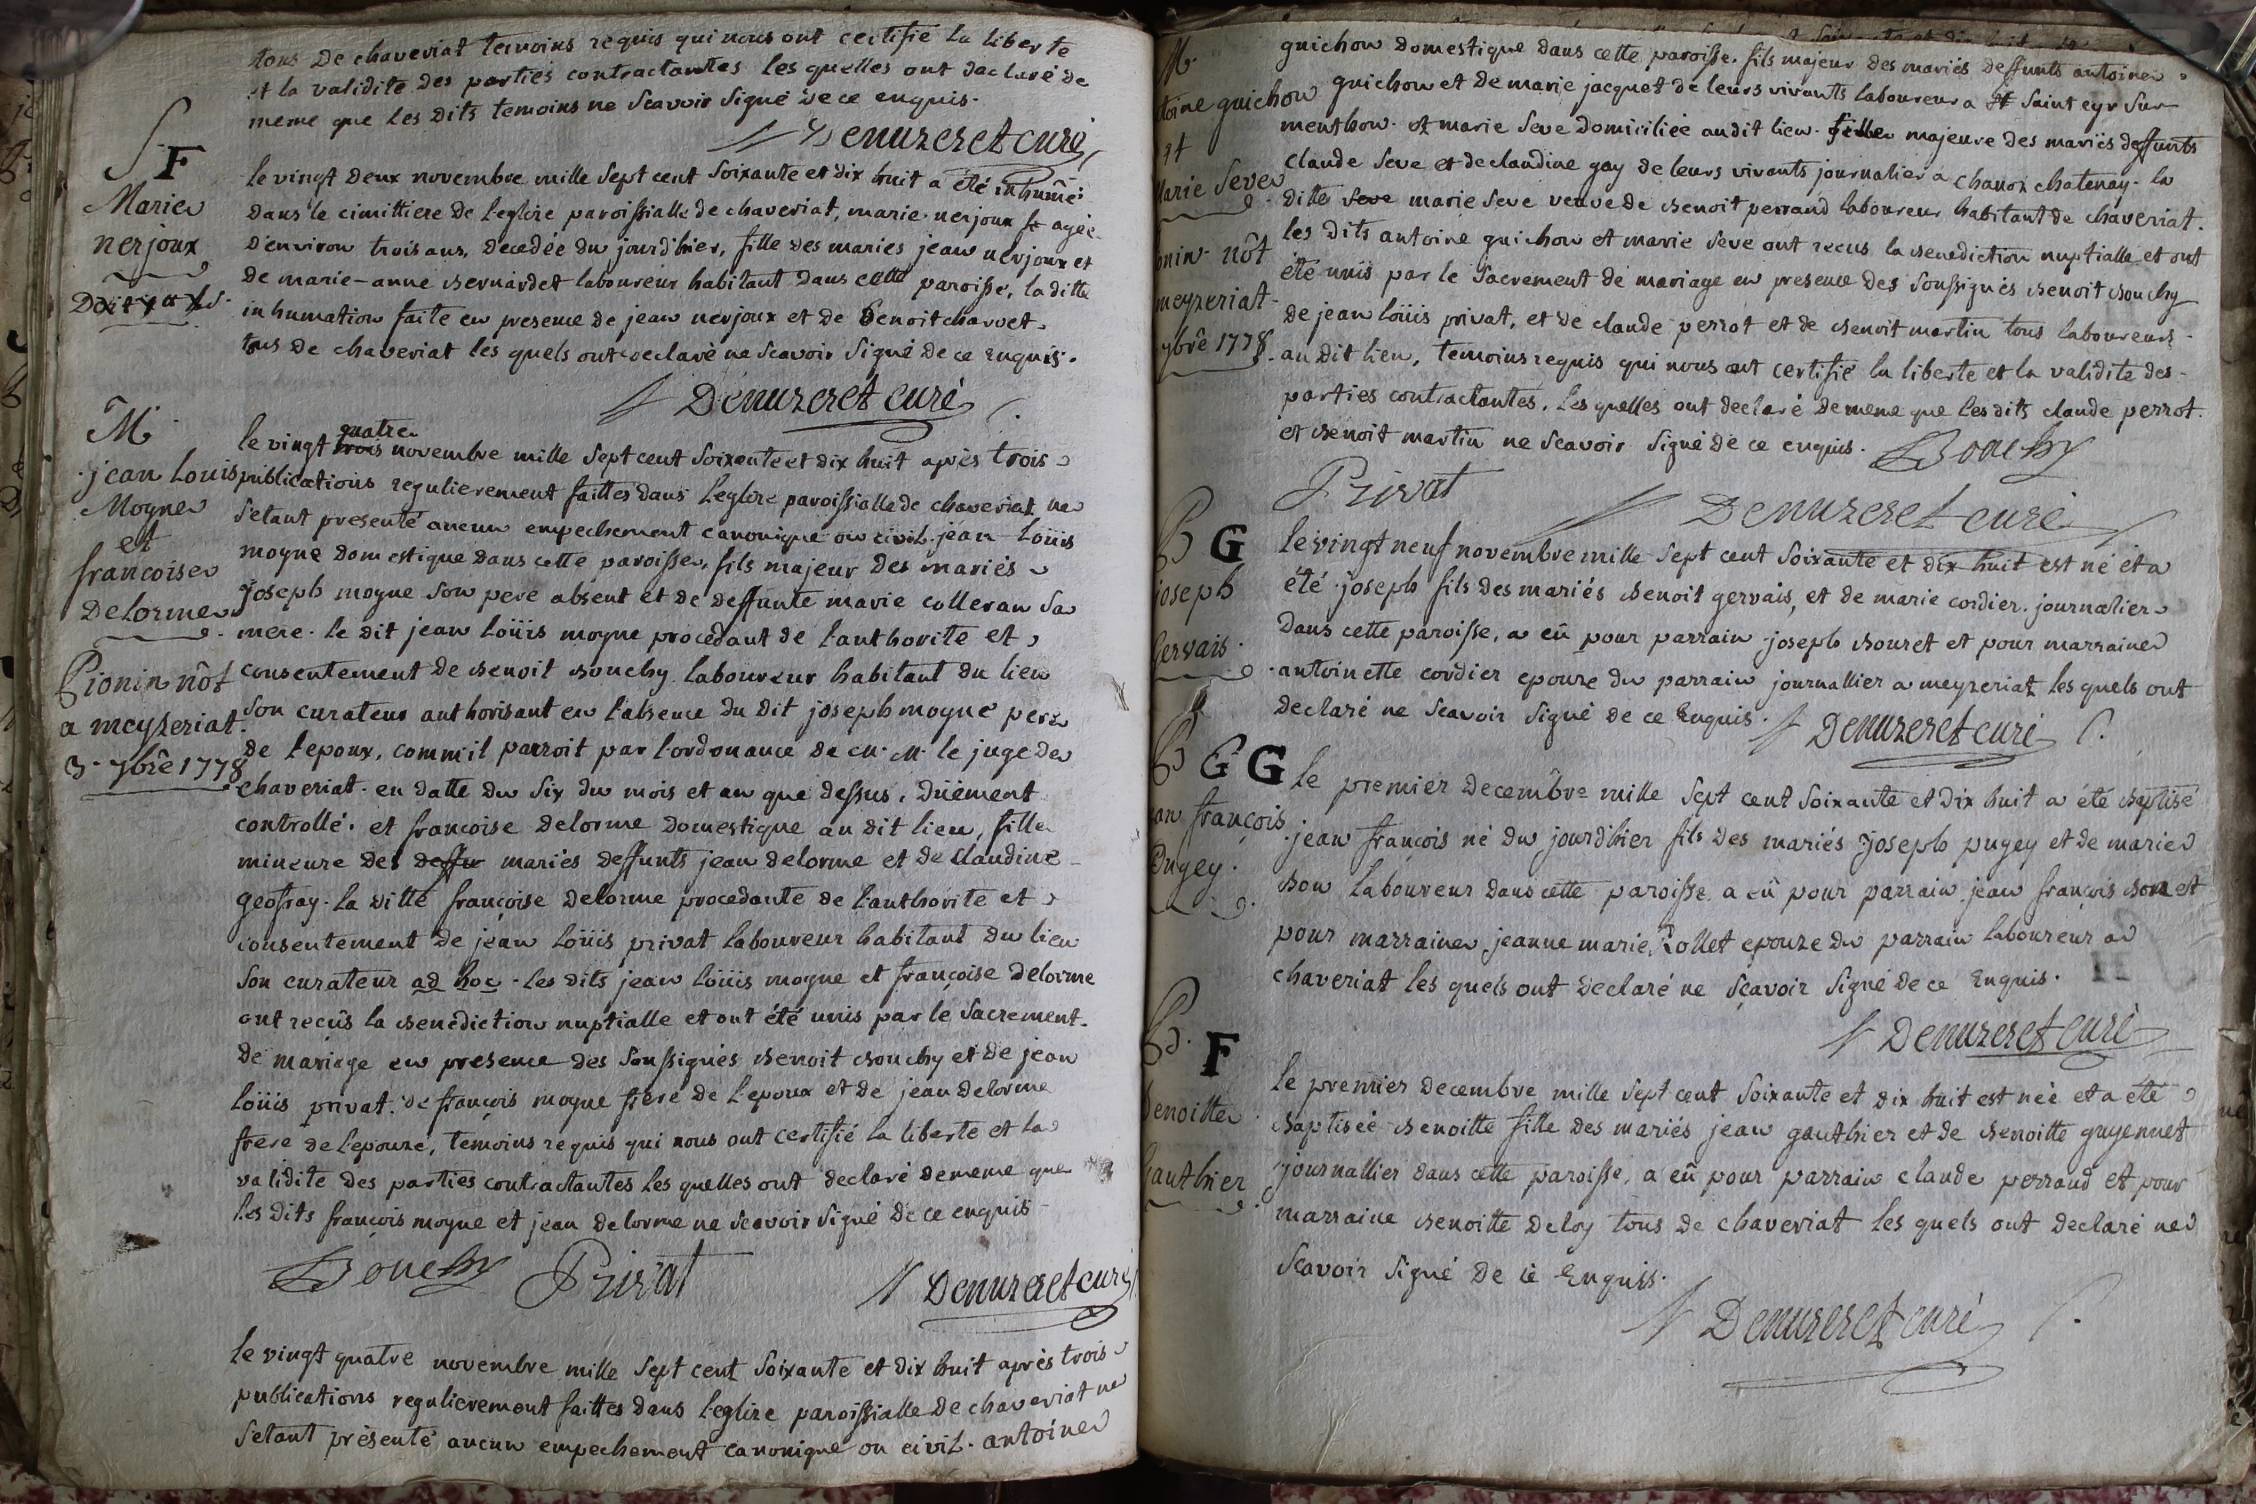 tous De chaveriat temoins requis qui nous ont certifié la liberte
et la validite des parties contractantes les quelles ont declaré de
meme que Les dits temoins ne Scavoir Signé De ce enquis.
Denuzeret curé
S. F
Marie
nerjoux
le vingt deux novembre mille Sept cent Soixante et dix huit a été inhumé
dans le cimittiere de l'eglize paroissialle de chaveriat, marie nerjoux agée
D'environ trois ans, Decedée du jourd'hier, fille des maries jean nerjoux et
De marie-anne Bernardet laboureur habitant dans cette paroisse, la ditte
inhumation faite en presence de jean nerjoux et de Benoit charvet
tous de chaveriat les quels ont declaré ne Scavoir Signé de ce Enquis.
Denuzeret curé
M.
jean Louis
Moyne
et
francoise
Delorme
Pionin nôt
a meyzeriat
3. 7bre 1778
le vingt trois quatre novembre mille Sept cent Soixante et dix huit après trois
publications regulierement faittes dans L'eglize paroissialle de chaveriat ne
Setant presenté aucun empechement canonique ou civil. jean Loüis
moyne domestique dans cette paroisse, fils majeur des mariés
Joseph moyne Son pere absent et de deffunte marie colleran Sa
mere. le dit jean Loüis moyne procedant de l'authorite et
consentement de Benoit Bouchy laboureur habitant du lieu
Son curateur authorisant en l'absence du dit joseph moyne pere
de l'epoux, comm'il parroit par l'ordonnance de M. le juge de
chaveriat. en datte du Six du mois et an que dessus, Düement
controllé. et francoise Delorme Domestique au dit lieu, fille
mineure des deffu mariés deffunts jean delorme et de Claudine
geofray. la ditte françoise Delorme procedante de l'authorite et
consentement de jean Loüis privat laboureur habitant du lieu
Son curateur ad hoc. Les dits jean Loüis moyne et françoise Delorme
ont reçûs la Benediction nuptialle et ont été unis par le Sacrement
de mariage en presence des Soussignés Benoit Bouchy et de jean
Loüis privat. de françois moyne frere de L'epoux et de jean delorme
frere de L'epouze, temoins requis qui nous ont certifié la liberte et la
validite des parties contractantes Les quelles ont declaré de meme que
les dits françois moyne et jean delorme ne Scavoir Signé de ce enquis
Bouchy Privat Denuzeret curé
le vingt quatre novembre mille Sept cent Soixante et dix huit après trois
publications regulierement faittes dans L'eglize paroissialle de chaveriat ne
Setant présenté aucun empechement canonique ou civil. antoine
M.
toine guichon
et
Marie Seve
onin nôt
meyzeriat
7bre 1778
guichon domestique dans cette paroisse. fils majeur des mariés deffunts antoine
guichon et de marie jacquet de leurs vivants laboureur a St Saint cyr Sur
menthon. et marie Seve domiciliée audit lieu. fille majeure des mariés deffunts
claude Seve et de claudine gay de leurs vivants journalier a chanoz chatenay. la
ditte Seve marie Seve veuve de Benoit perraud laboureur habitant de chaveriat.
les dits antoine guichon et marie Seve ont recus la Benediction nuptialle et ont
été unis par le Sacrement de mariage en presence des Soussignés Benoit Bouchy
de jean Loüis privat, et de claude perrot et de Benoit martin tous laboureurs
au dit lieu, temoins requis qui nous ont certifié la liberte et la validite des
parties contractantes. Les quelles ont declaré de meme que Les dits claude perrot
et Benoit martin ne Scavoir Signé de ce enquis. Bouchy
Privat
Denuzeret curé
B G
joseph
Gervais
le vingt neuf novembre mille Sept cent Soixante et dix huit est né et a
été joseph fils des mariés Benoit gervais, et de marie cordier. journalier
dans cette paroisse, a eû pour parrain joseph Bouret et pour marraine
antoinette cordier epouze du parrain journallier a meyzeriat les quels ont
declaré ne Scavoir Signé de ce Enquis. Denuzeret curé
B G G
an françois
Pugey.
le premier decembre mille Sept cent Soixante et dix huit a été Baptisé
jean françois né du jourd'hier fils des mariés Joseph pugey et de marie
Bon laboureur dans cette paroisse a eû pour parrain jean françois Bon et
pour marraine jeanne marie Rollet epouze du parrain laboureur a
chaveriat les quels ont declaré ne Sçavoir Signé de ce Enquis.
Denuzeret curé
B. F
Benoitte
Gauthier
le premier decembre mille Sept cent Soixante et dix huit est neé et a été
Baptiseé Benoitte fille des mariés jean gauthier et de Benoitte guyennet
journallier dans cette paroisse, a eû pour parrain claude perraud et pour
marraine Benoitte Deloy tous de chaveriat Les quels ont declaré ne
Scavoir Signé De cè Enquis.
Denuzeret curé